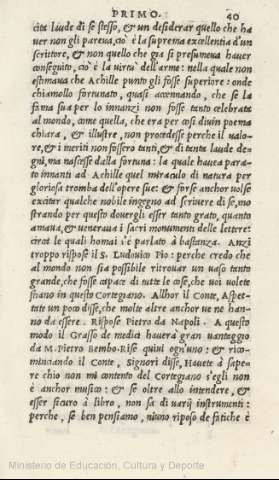 PRIMO. 40
cita laude di se stesso, & un desiderar quello che ha
ver non gli pareua, cio è la suprema excellentia d'un
scrittore, & non quello che gia si presumeua hauer
conseguito, cio è la uirtu dell'arme: nella quale non
estimaua che Achille punto gli fosse superiore: onde
chiamollo fortunato, quasi accennando, che se la
fama sua per lo innanzi non fosse tanto celebrata
al mondo, come quella, che era per cosi diuin poema
chiara, & illustre, non procedesse perche il ualo-
re, & i meriti non fossero tanti, & di tanta laude de-
gni, ma nascesse dalla fortuna: la quale hauea para-
to innanti ad Achille quel miraculo di natura per
gloriosa tromba dell'opere sue: & forse anchor uolse
exciter qualche nobile ingegno ad scriuere di se, mo
strando per questo douergli esser tanto grato, quanto
amaua, & ueneraua i sacri monumenti delle lettere:
circa le quali homai s'è parlato à bastanza. Anzi
troppo rispose il S. Ludouico Pio: perche credo che
al mondo non sia possibile ritrouar un uaso tanto
grande, che fosse capace di tutte le cose, che uoi uolete
stiano in questo Cortegiano. Allhor il Conte, Aspet-
tate un poco disse, che molte altre anchor ue ne han-
no da essere. Rispose Pietro da Napoli. A questo
modo il Grasso de medici hauerà gran uantaggio
da M. Pietro Bembo. Rise quiui ogn'uno: & rico-
minciando il Conte, Signori disse, Hauete à sape-
re ch'io non mi contento del Cortegiano s'egli non
è anchor musico: & se oltre allo intendere, &
esser sicuro à libro, non sa di uarij instrumenti:
perche, se ben pensiamo, niuno riposo de fatiche è
Ministerio de Educación, Cultura y Deporte